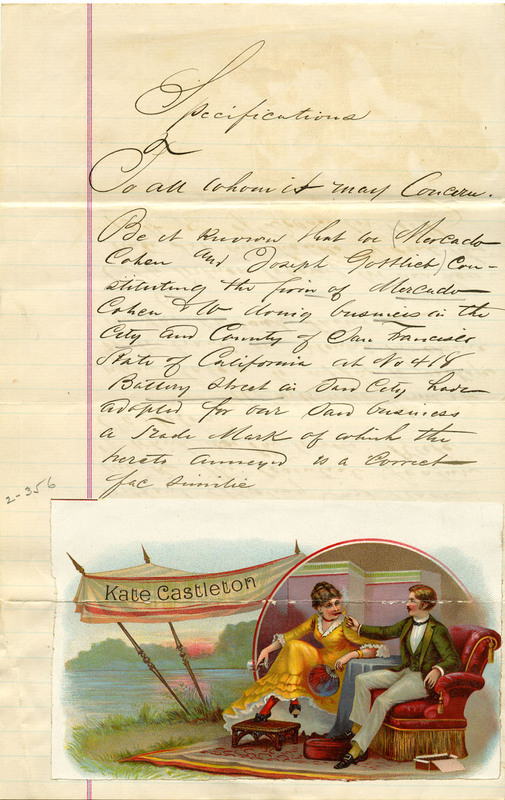 Specifications
To all whom it may Concern.
Be it known that we (Mercado
Cohen and Joseph Gottlieb) Con-
stituting the firm of Mercado
Cohen & Co doing business in the
City and County of San Francisco
State of California at No 418
Battery Street in said City have
adopted for our said business
a Trade Mark of which the
hereto annexed is a Correct
fac similie
2-356
Kate Castleton